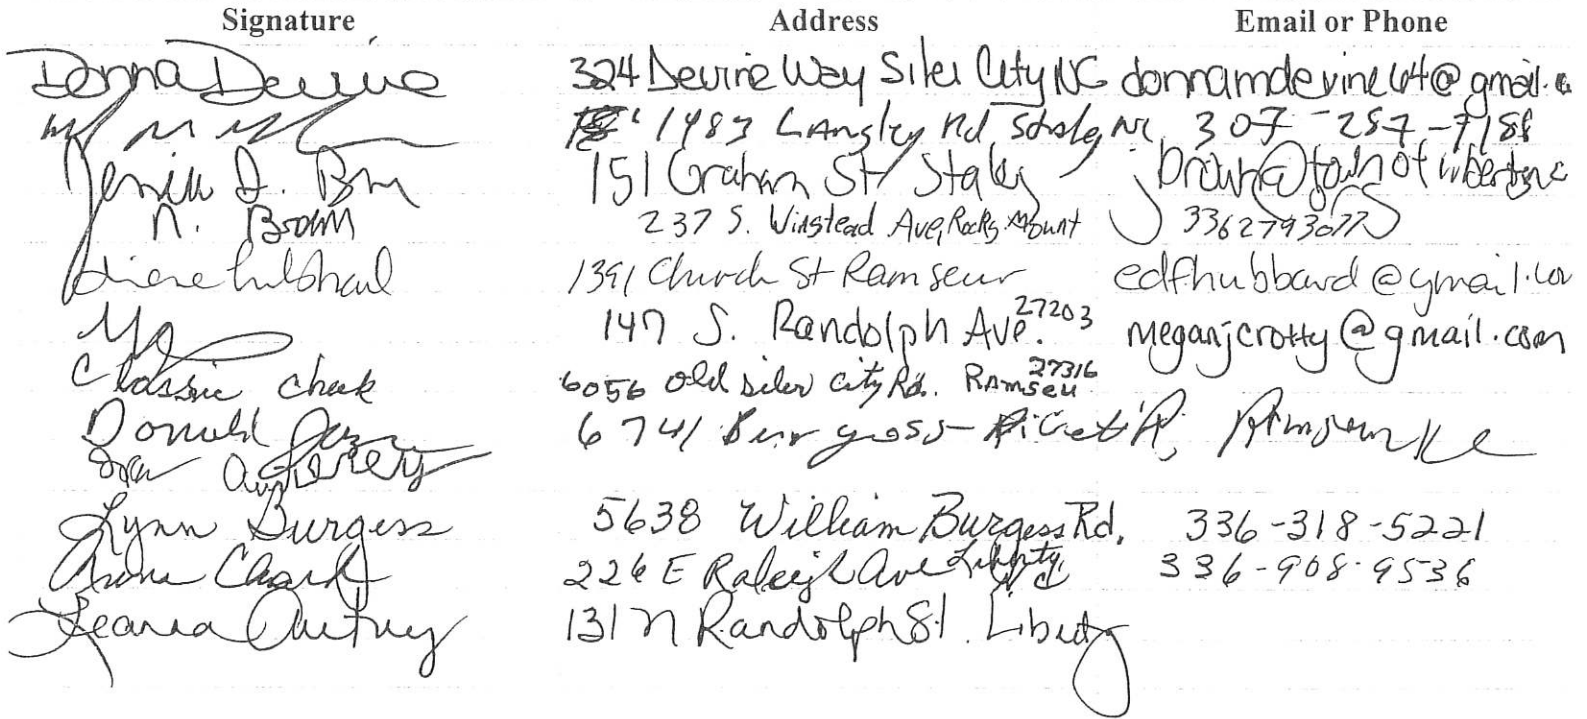 Signature Address Email or Phone
Donna Devine 324 Devine Way Siler City NC donnamdevine64@gmail.c
1483 Langley Rd Staley NC 307-287-7188
J. Brn 151 Graham St/ Staley jbrown@townofliberty
N. Brown 237 S. Winstead Ave, Rocky Mount 3362793077
Hubbard 1391 Church St Ramseur edfhubbard@gmail.com
147 S. Randolph Ave. 27203 meganjcrotty@gmail.com
Classie Cheek 6056 old siler city Rd. Ramseu 27316
Donald 6741 Ramseur NC
Lynn Burgess 5638 William Burgess Rd. 336-318-5221
226 E Raleigh Ave Liberty NC 336-908-9536
Autrey 131 N Randolph St. Liberty